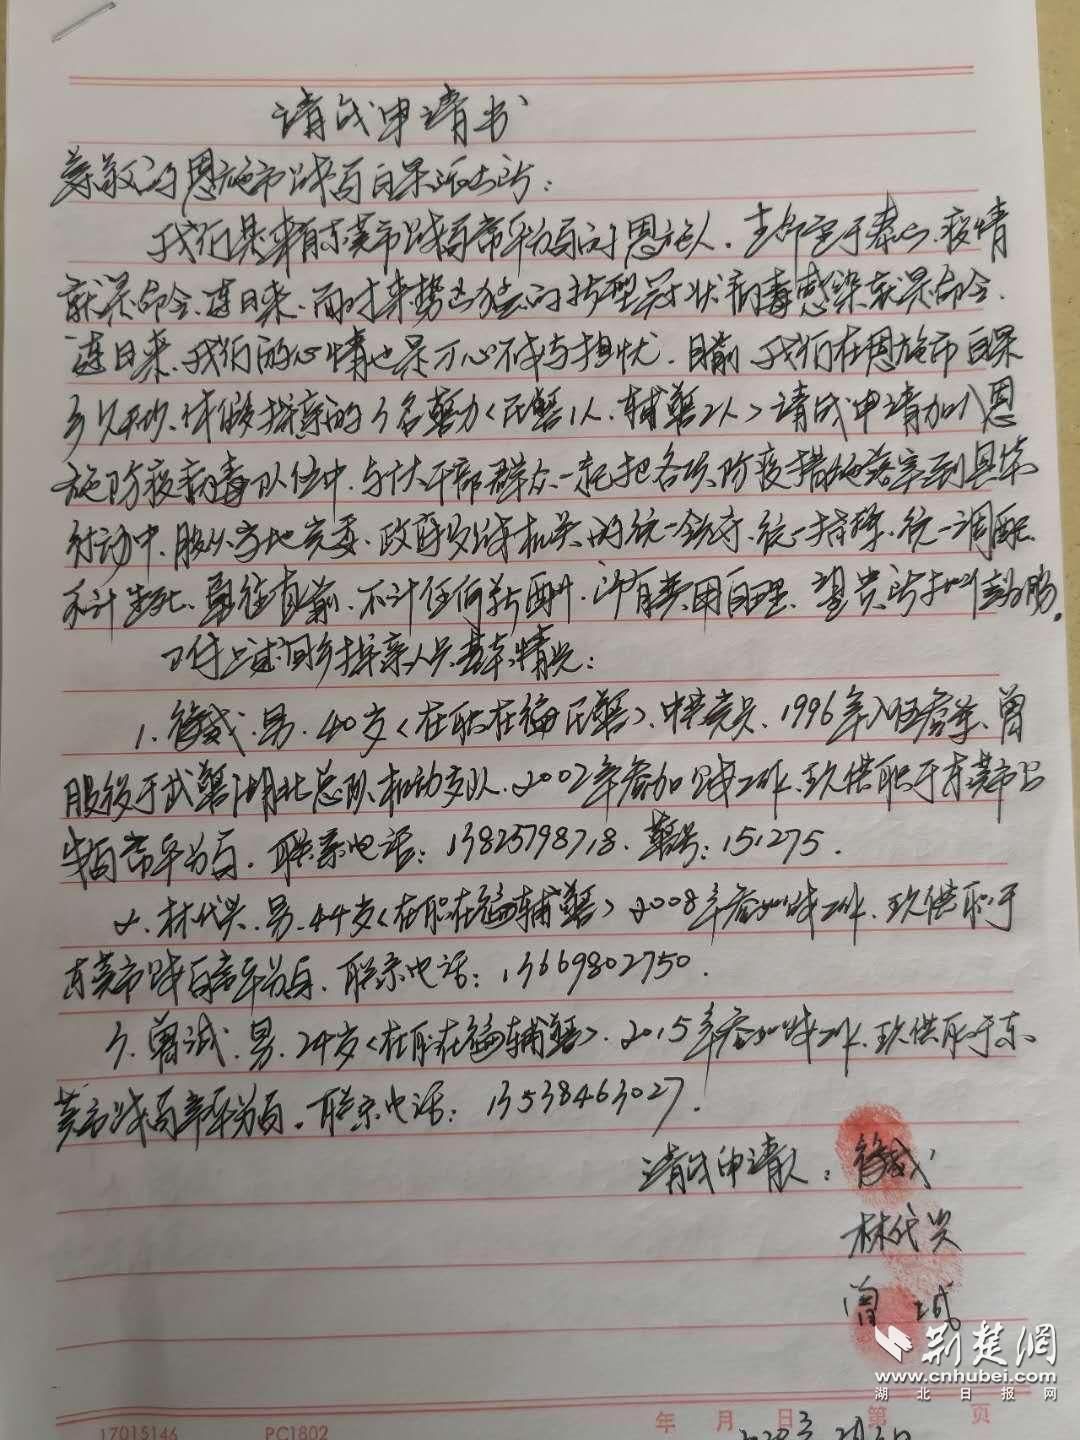 请战申请书
尊敬的恩施市公安局白果派出所：
我们是来自东莞市公安局常平分局的恩施人.生命重于泰山.疫情
就是命令、连日来.面对来势凶的新型冠状病毒感染就是命令.
连日来.我们的心情也是万心不安与担忧.目前.我们在恩施市白果
乡休假探亲的3名警力<民警1人.辅警2人>请战申请加入恩
施防疫病毒队伍中.与广大干部群众一起把各项防疫措施落实到具体
行动中.服从当地党委、政府及公安机关的统一领导、统一指挥、统一调配.
不计生死、勇往直前.不计任何报酬.所有费用自理.望贵所批准为盼。
附上述回乡探亲人员基本情况：
1.徐威.男.40岁<在职在编民警>.中共党员.1996年入伍参军、曾
服役于武警湖北总队机动支队.2002年参加公安工作.现供职于东莞市公
安局常平分局.联系电话：13825798718.警号：151275.
2.林代兴.男.44岁<在职在编辅警>2008年参加公安工作.现供职于
东莞市公安局常平分局.联系电话：13669802750.
3.曾诚.男.24岁<在职在编辅警>.2015年参加公安工作.现供职于东
莞市公安局常平分局。联系电话：13538463027.
请战申请人：徐威
林代兴
曾诚
荆楚網
www.cnhubei.com
湖北日报网
17015146 PC1802 年 月 日 第 页